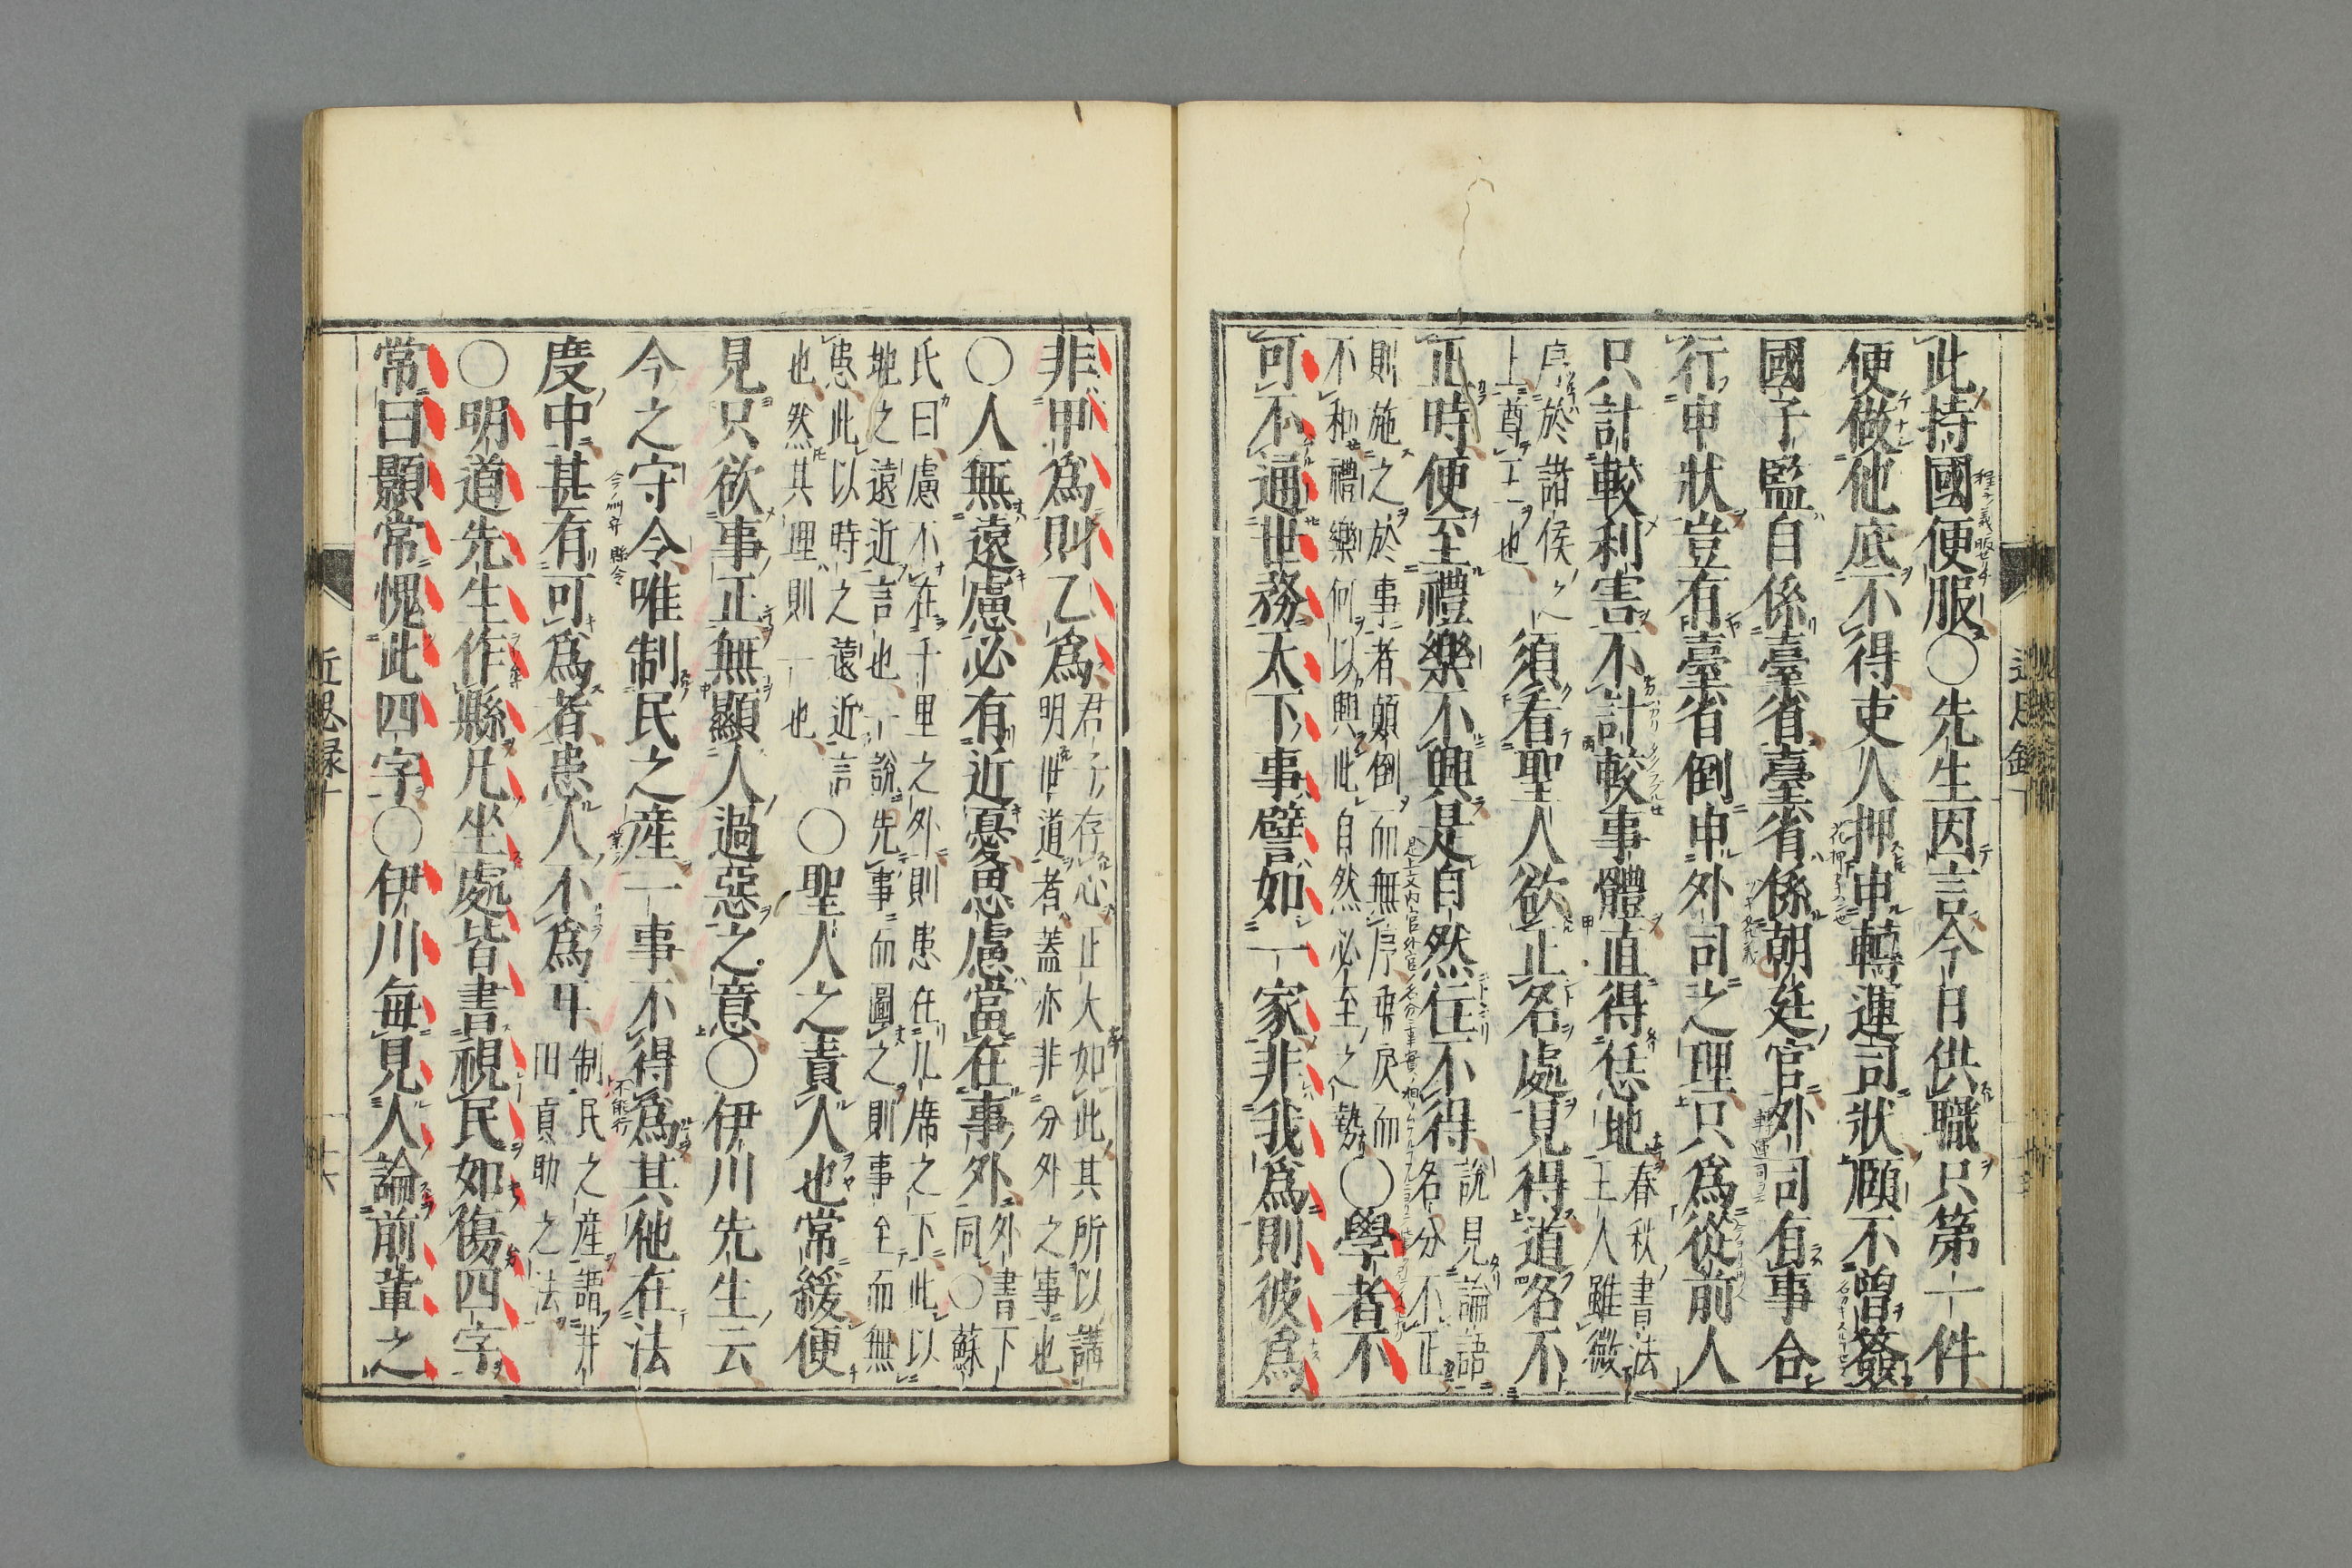 此持國便服〇先生因言今日供職只第一件
便做他底不得吏人押申轉運司狀頤不曾簽
國子監自係臺省臺省係朝廷官外司有事合
行申狀豈有臺省倒申外司之理只爲從前人
只計較利害不計較事體直得恁地
春秋書法
王人雖微
序於諸侯之
上尊王也
須看聖人欲正名處見得道名不
正時便至禮樂不興是自然住不得
說見論語
名分不正
則施之於事者顛倒而無序乖戾而
不和禮樂何以興此自然必至之勢
〇學者不
可不通世務天下事譬如一家非我爲則彼爲
非甲爲則乙爲
君子存心正大如此其所以講
明世道者蓋亦非分外之事也
〇人無遠慮必有近憂思慮當在事外
外書下
同〇蘇
氏曰慮不在千里之外則患在几席之下此以
地之遠近言也一說先事而圖之則事至而無
患此以時之遠近言
也然其理則一也
〇聖人之責人也常緩便
見只欲事正無顯人過惡之意〇伊川先生云
今之守令唯制民之産一事不得爲其他在法
度中甚有可爲者患人不爲耳
制民之産謂井
田貢助之法
〇明道先生作縣凡坐處皆書視民如傷四字
常曰顥常愧此四字〇伊川每見人論前輩之
近思録十